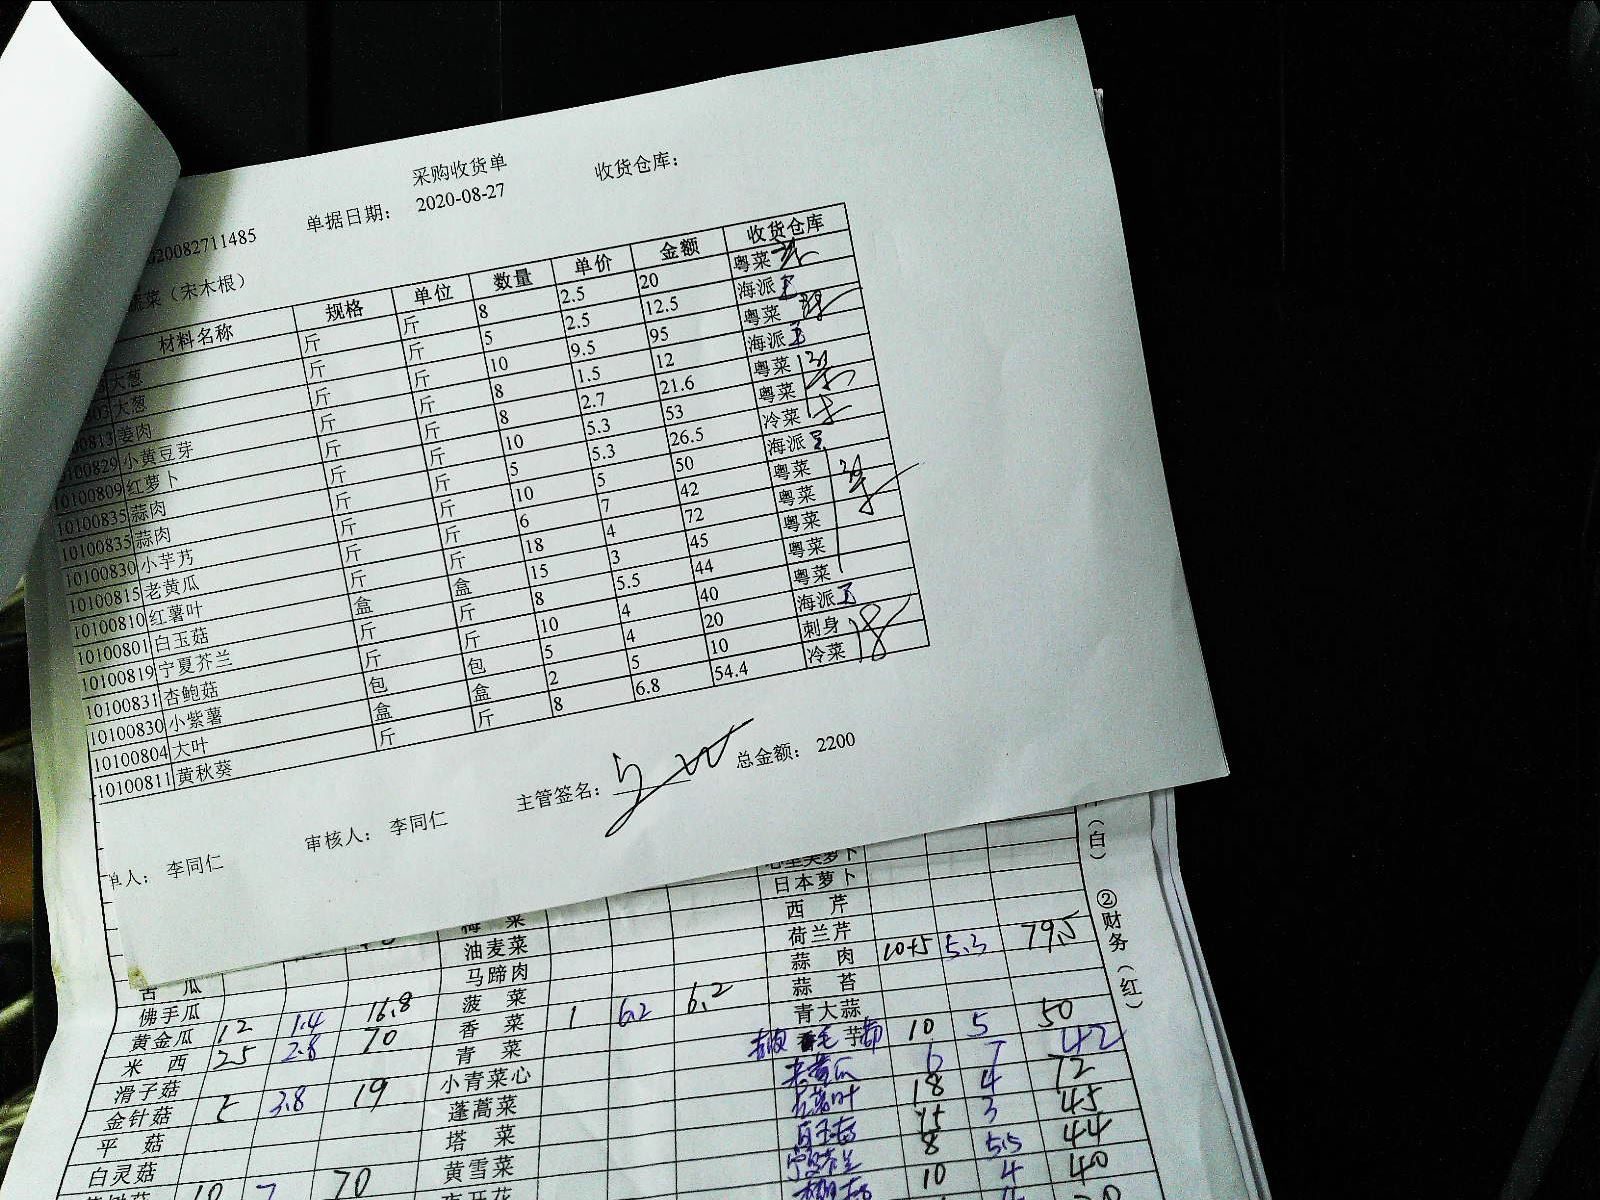 采购收货单
20082711485 单据日期： 2020-08-27 收货仓库：
蔬菜（宋木根）
材料名称 规格 单位 数量 单价 金额 收货仓库
大葱 斤 斤 8 2.5 20 粤菜
03 大葱 斤 斤 5 2.5 12.5 海派
00813 姜肉 斤 斤 10 9.5 95 粤菜
0100829 小黄豆芽 斤 斤 8 1.5 12 海派
10100809 红萝卜 斤 斤 8 2.7 21.6 粤菜
10100835 蒜肉 斤 斤 10 5.3 53 粤菜
10100835 蒜肉 斤 斤 5 5.3 26.5 冷菜
10100830 小芋艿 斤 斤 10 5 50 海派
10100815 老黄瓜 斤 斤 6 7 42 粤菜
10100810 红薯叶 斤 斤 18 4 72 粤菜
10100801 白玉菇 盒 盒 15 3 45 粤菜
10100819 宁夏芥兰 斤 斤 8 5.5 44 粤菜
10100831 杏鲍菇 斤 斤 10 4 40 粤菜
10100830 小紫薯 包 包 5 4 20 海派
10100804 大叶 盒 盒 2 5 10 刺身
10100811 黄秋葵 斤 斤 8 6.8 54.4 冷菜
单人： 李同仁 审核人： 李同仁 主管签名： 总金额： 2200
（白） ②财务（红）
日本萝卜
西 芹
油麦菜 荷兰芹
马蹄肉 蒜 肉 10+5 5.3 79.5
苦 瓜 菠 菜 蒜 苔
佛手瓜 香 菜 1 6.2 6.2 青大蒜
黄金瓜 12 1.4 16.8 青 菜 芋艿 10 5 50
米 西 25 2.8 70 小青菜心 老黄瓜 6 7 42
滑子菇 蓬蒿菜 红薯叶 18 4 72
金针菇 5 3.8 19 塔 菜 白玉菇 15 3 45
平 菇 黄雪菜 宁夏芥兰 8 5.5 44
白灵菇 10 4 40
10 7 70